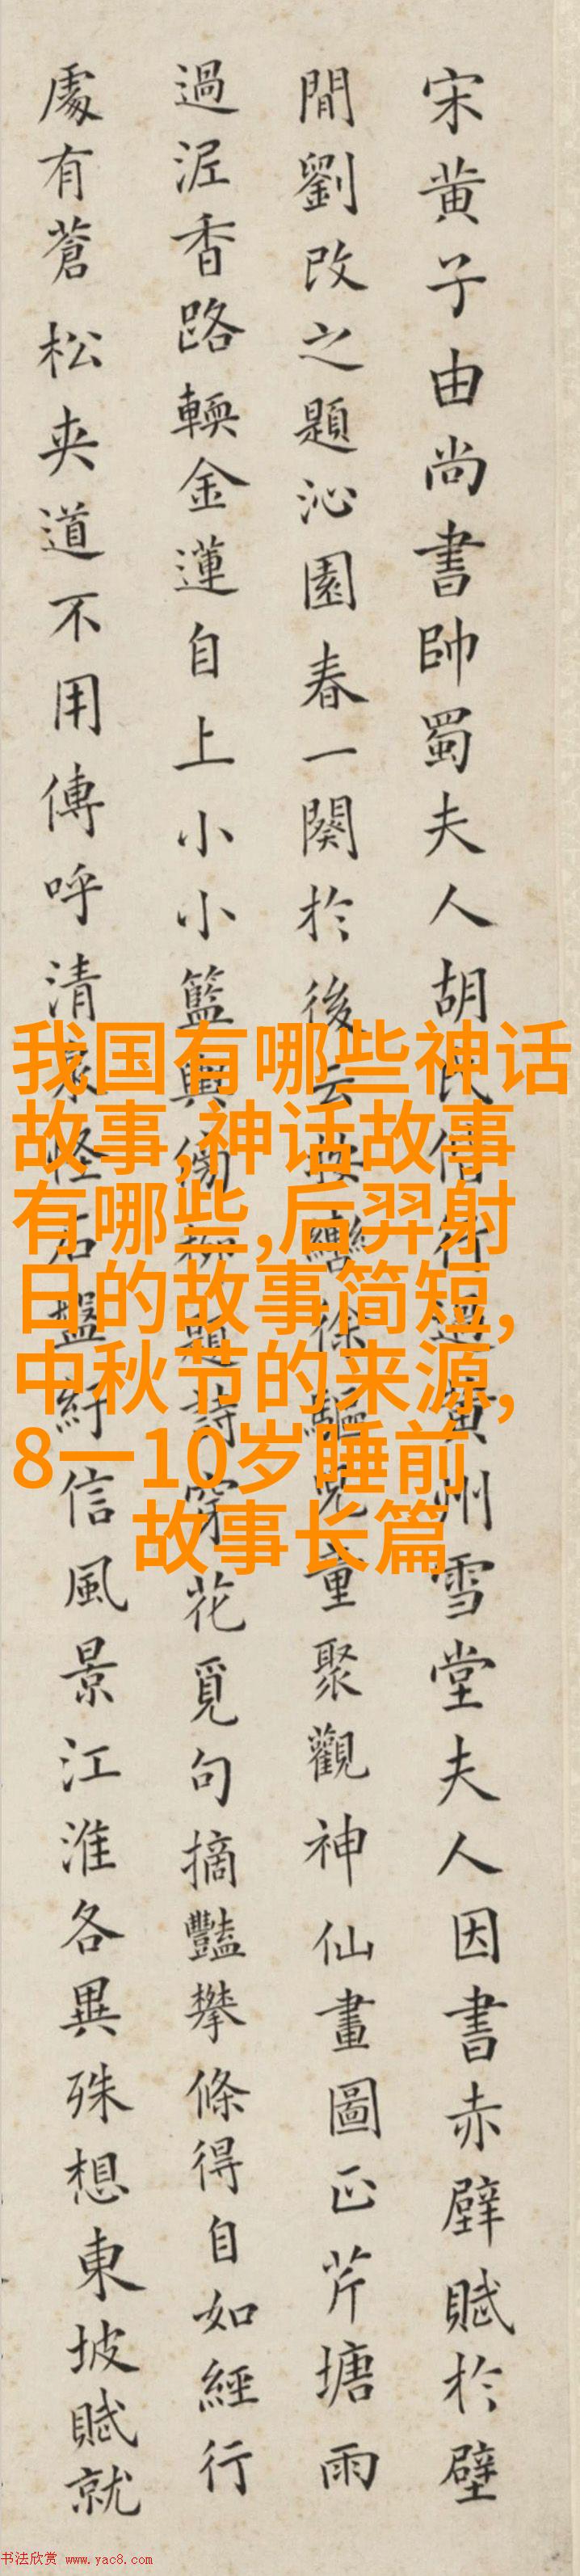 宋黄子由尚書帥蜀夫人胡氏偕行過黄州雪堂夫人因書赤壁賦於壁
間劉改之題沁園春一闋於後云按轡徐驅兒童聚觀神仙畫圖正芹塘雨
過泥香路輭金蓮自上小小籃輿傍柳題詩穿花覓句摘豔攀條得自如經行
處有蒼松夾道不用傳呼清泉怪石盤紆信風景江淮各異殊想東坡賦就
我国有哪些神话
故事,神话故事
有哪些,后羿射
日的故事简短,
中秋节的来源,
8一10岁睡前
故事长篇
书法欣赏 www.yac8.com